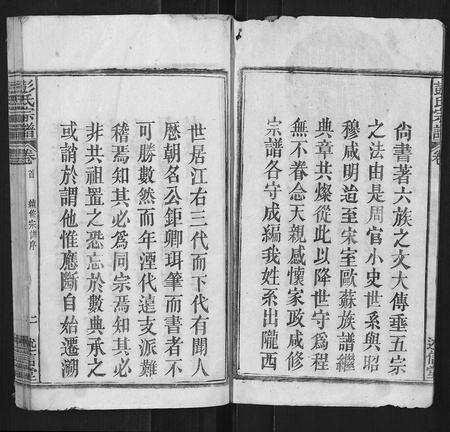 尙書著六族之文大傳垂五宗
之法由是周官小史世系與昭
穆咸明逌至宋室歐蘇族譜繼
典章共燦從此以降世守爲程
無不眷念天親感懷家政咸修
宗譜各守成編我姓系出隴西
世居江右三代而下代有聞人
歷朝名公鉅卿珥筆而書者不
可勝數然而年湮代遠支派難
稽焉知其必爲同宗焉知其必
非共祖置之恐忘於數典承之
或誚於謂他惟應斷自始遷溯
彭氏宗譜
卷
首
續修宗譜序
二
彭氏宗譜
卷
述信堂